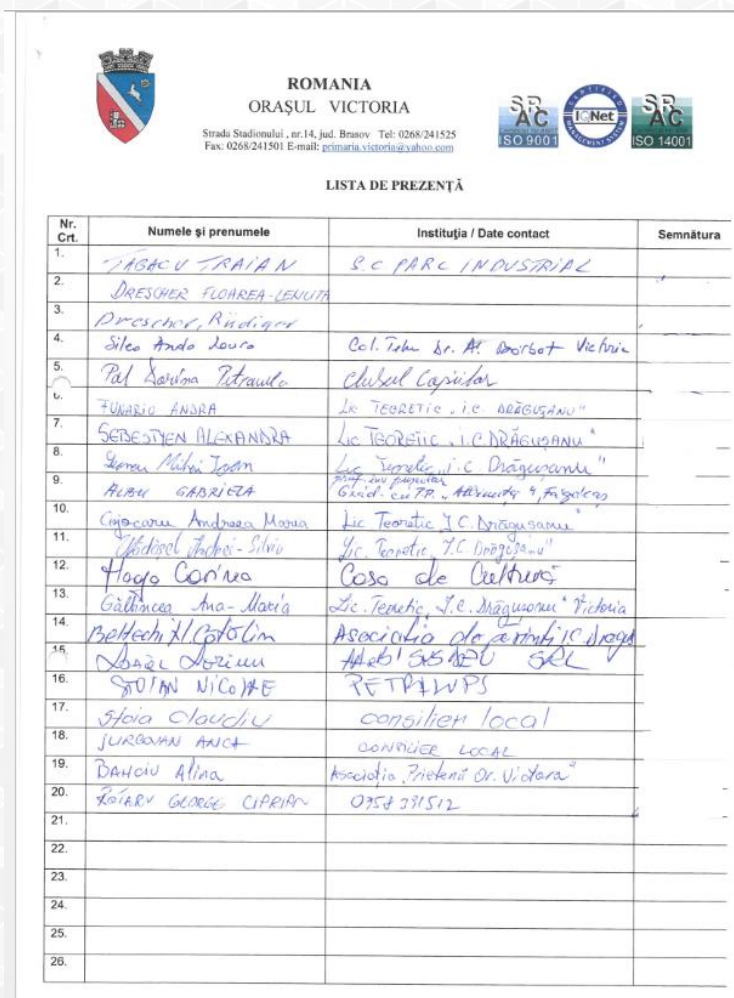 ROMANIA
ORAȘUL VICTORIA
Strada Stadionului , nr.14, jud. Brasov Tel: 0268/241525
Fax: 0268/241501 E-mail: primaria.victoria@yahoo.com
SRAC
ISO 9001
CERTIFIED
IQNet
MANAGEMENT SYSTEM
SRAC
ISO 14001
LISTA DE PREZENȚĂ
Nr. Crt. Numele și prenumele Instituția / Date contact Semnătura
1. TABACU TRAIAN S.C PARC INDUSTRIAL
2. DRESCHER FLOAREA-LENUTA
3. Drescher, Rüdiger
4. Anda Col. Dr. Victoria
5. Pal Clubul Copiilor
6. ANDRA Lic TEORETIC „I.C. DRĂGUȘANU"
7. SEBESTYEN ALEXANDRA Lic TEORETIC „I.C. DRĂGUȘANU"
8. Mihai Ioan Lic Teoretic „I.C. Drăgușanu"
9. ALBU GABRIELA
10. Cojocaru Andreea Maria Lic Teoretic I C. Drăgușanu"
11. Andrei-Silviu Lic. Teoretic, I.C. Drăgușanu"
12. Haga Corina Casa de Cultură
13. Ana-Maria Lic. Teoretic, I.C. Drăgușanu" Victoria
14. Catalin Asociatia de parinti IC Dragus
15. Dorinu SRL
16. STOIAN NICOLAE
17. Stoia Claudiu consilier local
18. JURCOVAN ANCA CONSILIER LOCAL
19. BANCIU Alina Asociația „Prietenii Or. Victoria"
20. ROTARU GEORGE CIPRIAN
21.
22.
23.
24.
25.
26.